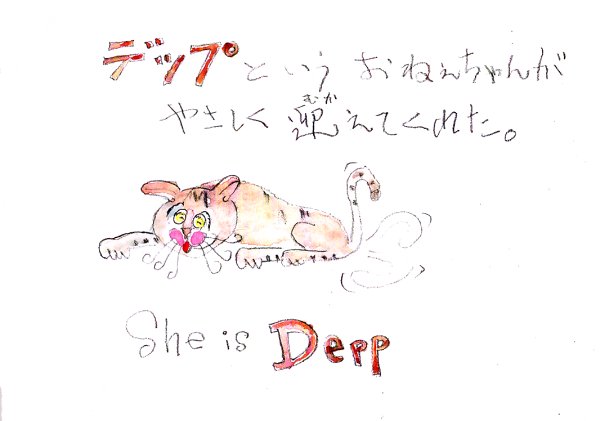 デップというおねえちゃんが
やさしく迎えてくれた。
むか
She is Depp